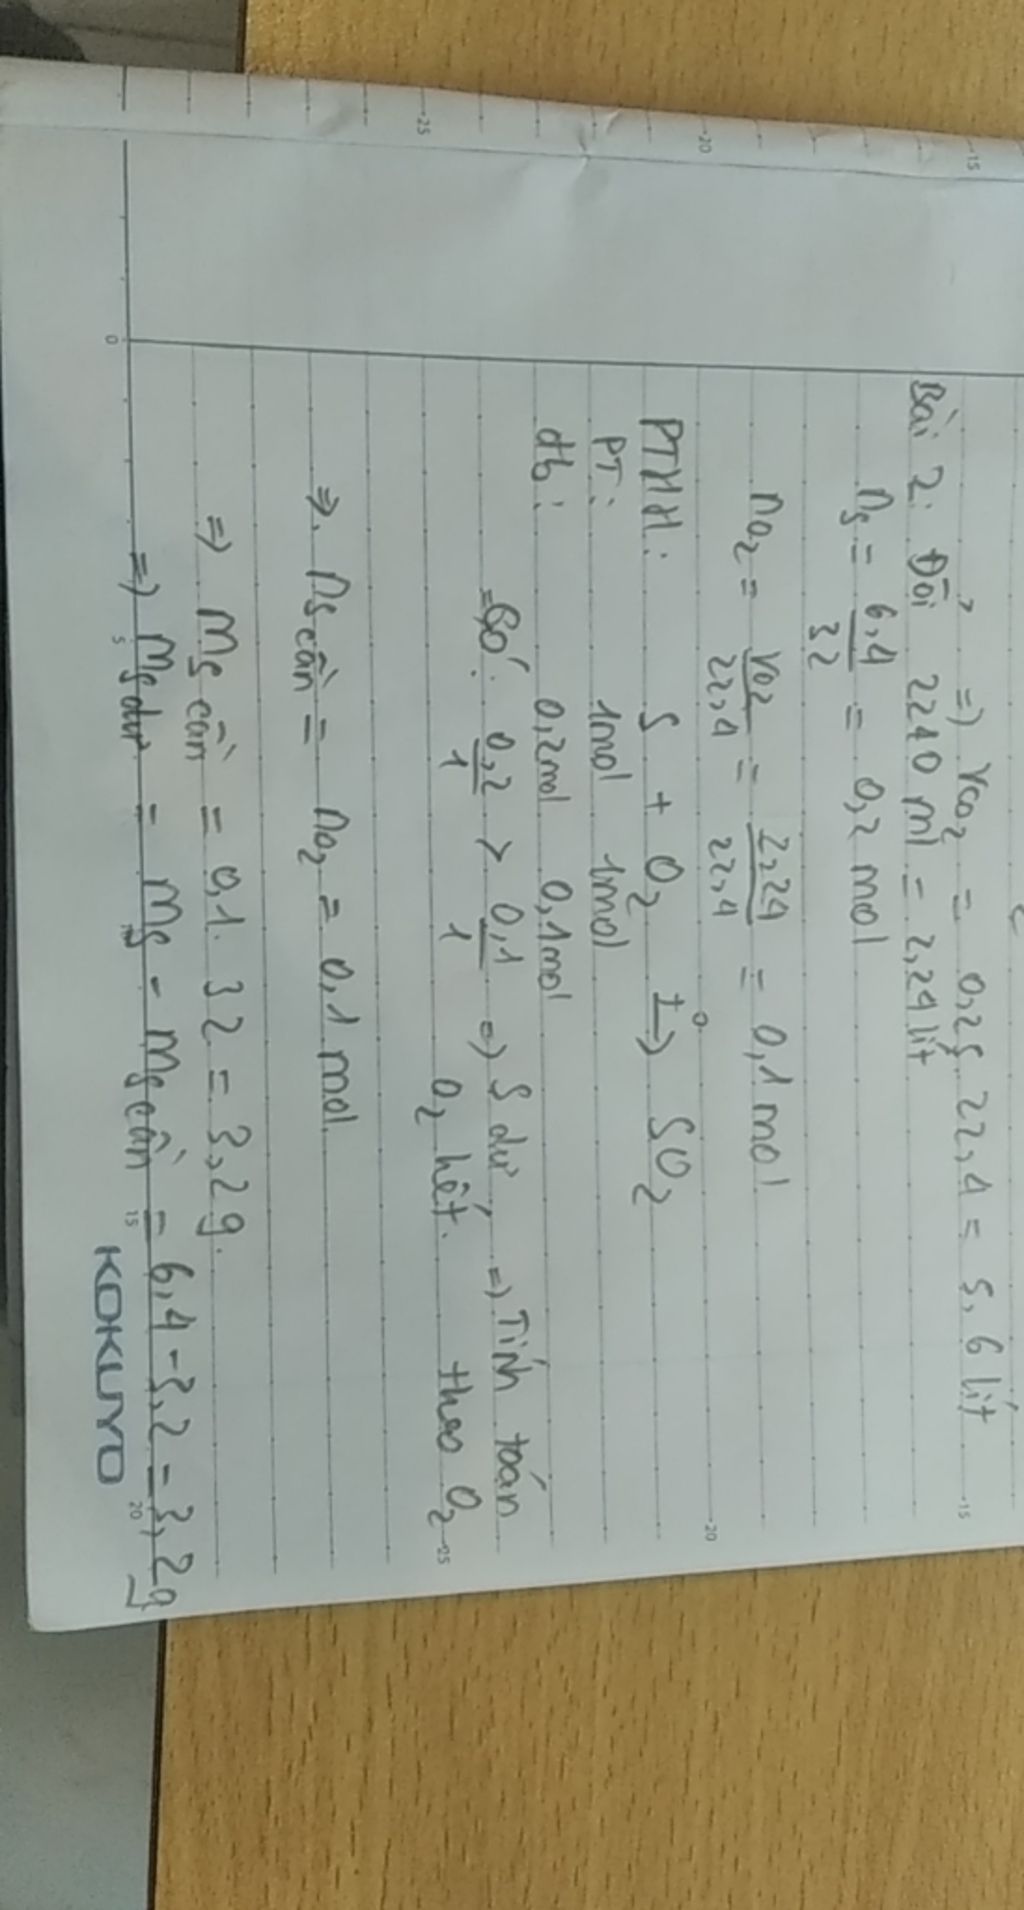 => VCO2 = 0,25. 22,4 = 5,6 lít
Bài 2: Đổi 2240 ml = 2,24 lít
nS = 6,4/32 = 0,2 mol
nO2 = VO2/22,4 = 2,24/22,4 = 0,1 mol
PTHH: S + O2 t°→ SO2
PT: 1mol 1mol
đb: 0,2mol 0,1mol
Có: 0,2/1 > 0,1/1 => S dư, => Tính toán
O2 hết. theo O2
=> nS cần = nO2 = 0,1 mol.
=> mS cần = 0,1. 32 = 3,2g.
=> mS dư = mS - mS cần = 6,4 - 3,2 = 3,2g
KOKUYO
15
20
25
0
5
15
20
15
20
25